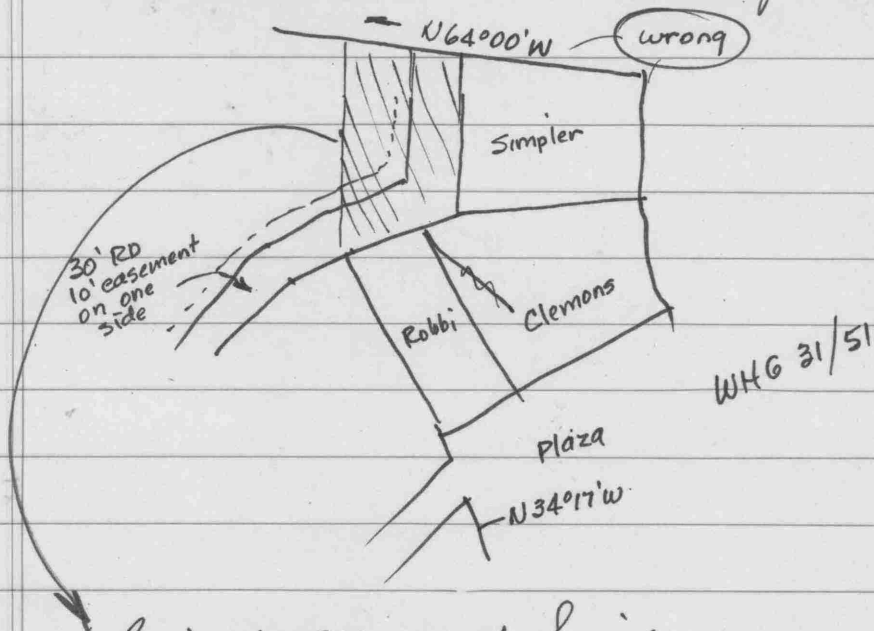 N64°00'W
wrong
Simpler
30' RD
10' easement
on one
side
Robbi
Clemons
WHG 31/51
plaza
N34°17'W